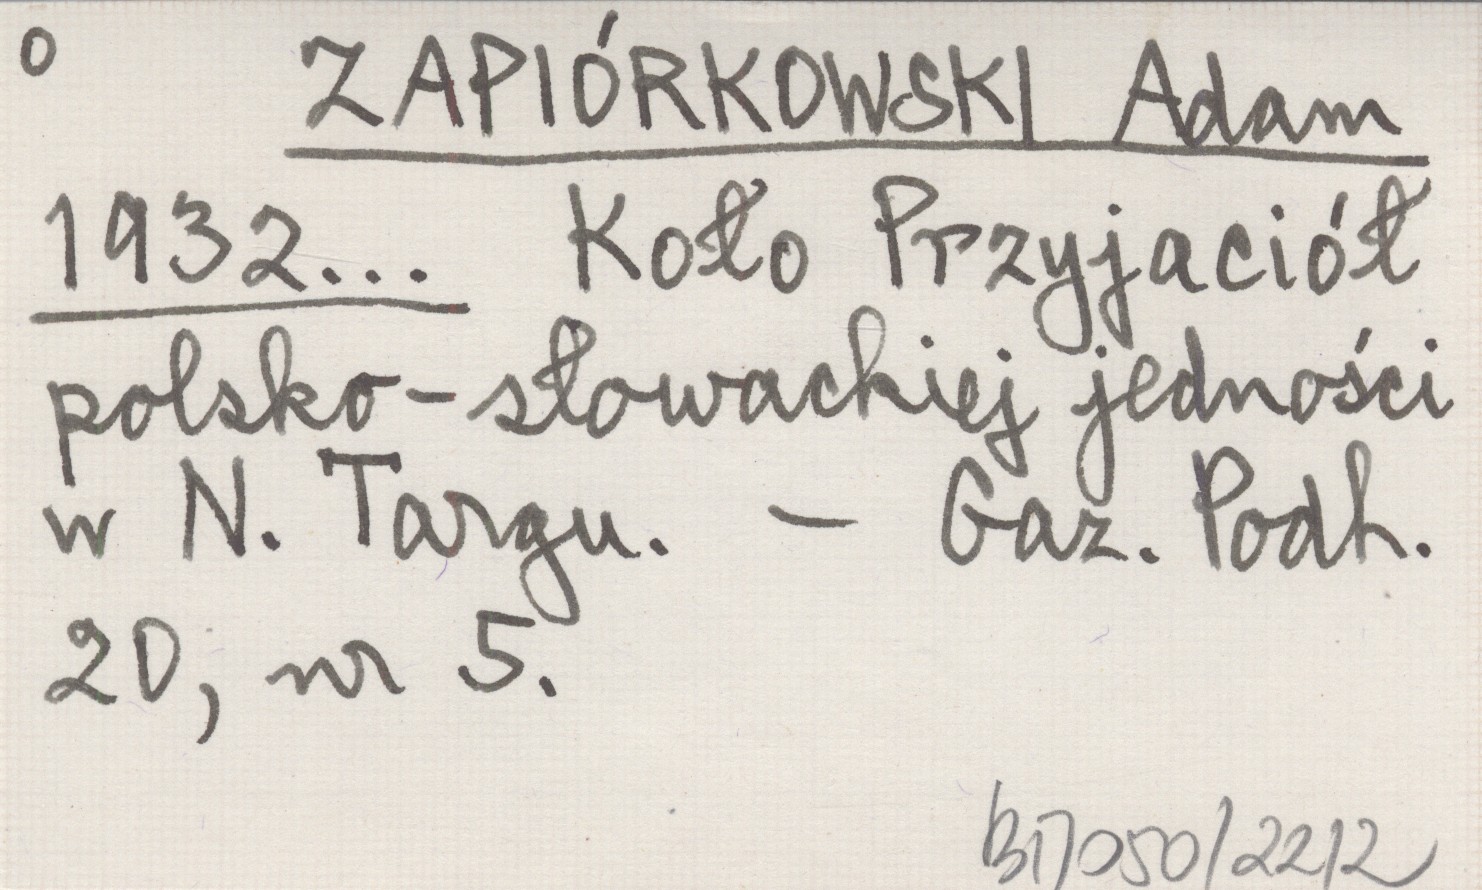 o
ZAPIÓRKOWSKI Adam
1932... Koło Przyjaciół
polsko-słowackiej jedności
w N. Targu. - Gaz. Podh.
20, nr 5.
050/22/2